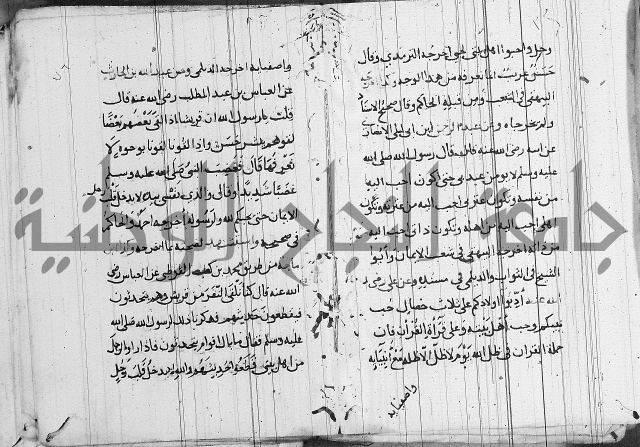 وجل واحبوا اهل بيتي بحبي اخرجه الترمذي وقال
حسن غريب انما نعرفه من هذا الوجه واخرجه
البيهقي في الشعب ومن قبله الحاكم وقال صحيح الاسناد
ولم يخرجاه وعن عبد الرحمن ابن ابي ليلى الانصاري
عن ابيه رضي الله عنه قال قال رسول الله صلى الله
عليه وسلم لا يومن عبد بي حتى اكون احب اليه
من نفسه وتكون عترتي احب اليه من عترته وتكون
اهلي احب اليه من اهله وتكون ذاتي احب اليه
من ذاته اخرجه البيهقي في شعب الايمان وابو
الشيخ في الثواب والديلمي في مسنده وعن علي رضي
الله عنه ادبوا اولادكم على ثلاث خصال حب
نبيكم وحب اهل بيته وعلى قراءة القرآن فان
حملة القران في ظل الله يوم لا ظل الا ظله مع انبيايه
واصفيايه
واصفيايه اخرجه الديلمي وعن عبد الله بن الحارث
عن العباس بن عبد المطلب رضي الله عنه قال
قلت يا رسول الله ان قريشا اذا لقي بعضهم بعضا
لقوهم ببشر حسن واذا لقونا لقونا بوجوه لا
نعرفها قال فغضب النبي صلى الله عليه وسلم
غضبا شديدا وقال والذي نفسي بيده لا يدخل قلب رجل
الايمان حتى يحبكم لله ولرسوله اخرجه احمد والحاكم
في صحيحه واستشهد لصحته بما اخرجه
ماجه من طريق محمد بن كعب القرظي عن العباس رضي
الله عنه قال كنا نلقى النفر من قريش وهم يتحدثون
فيقطعون حديثهم فذكرنا ذلك لرسول الله صلى الله
عليه وسلم فقال ما بال اقوام يتحدثون فاذا راوا الرجل
من اهل بيتي قطعوا حديثهم والله لا يدخل قلب رجل
جامعة النجاح الوطنية